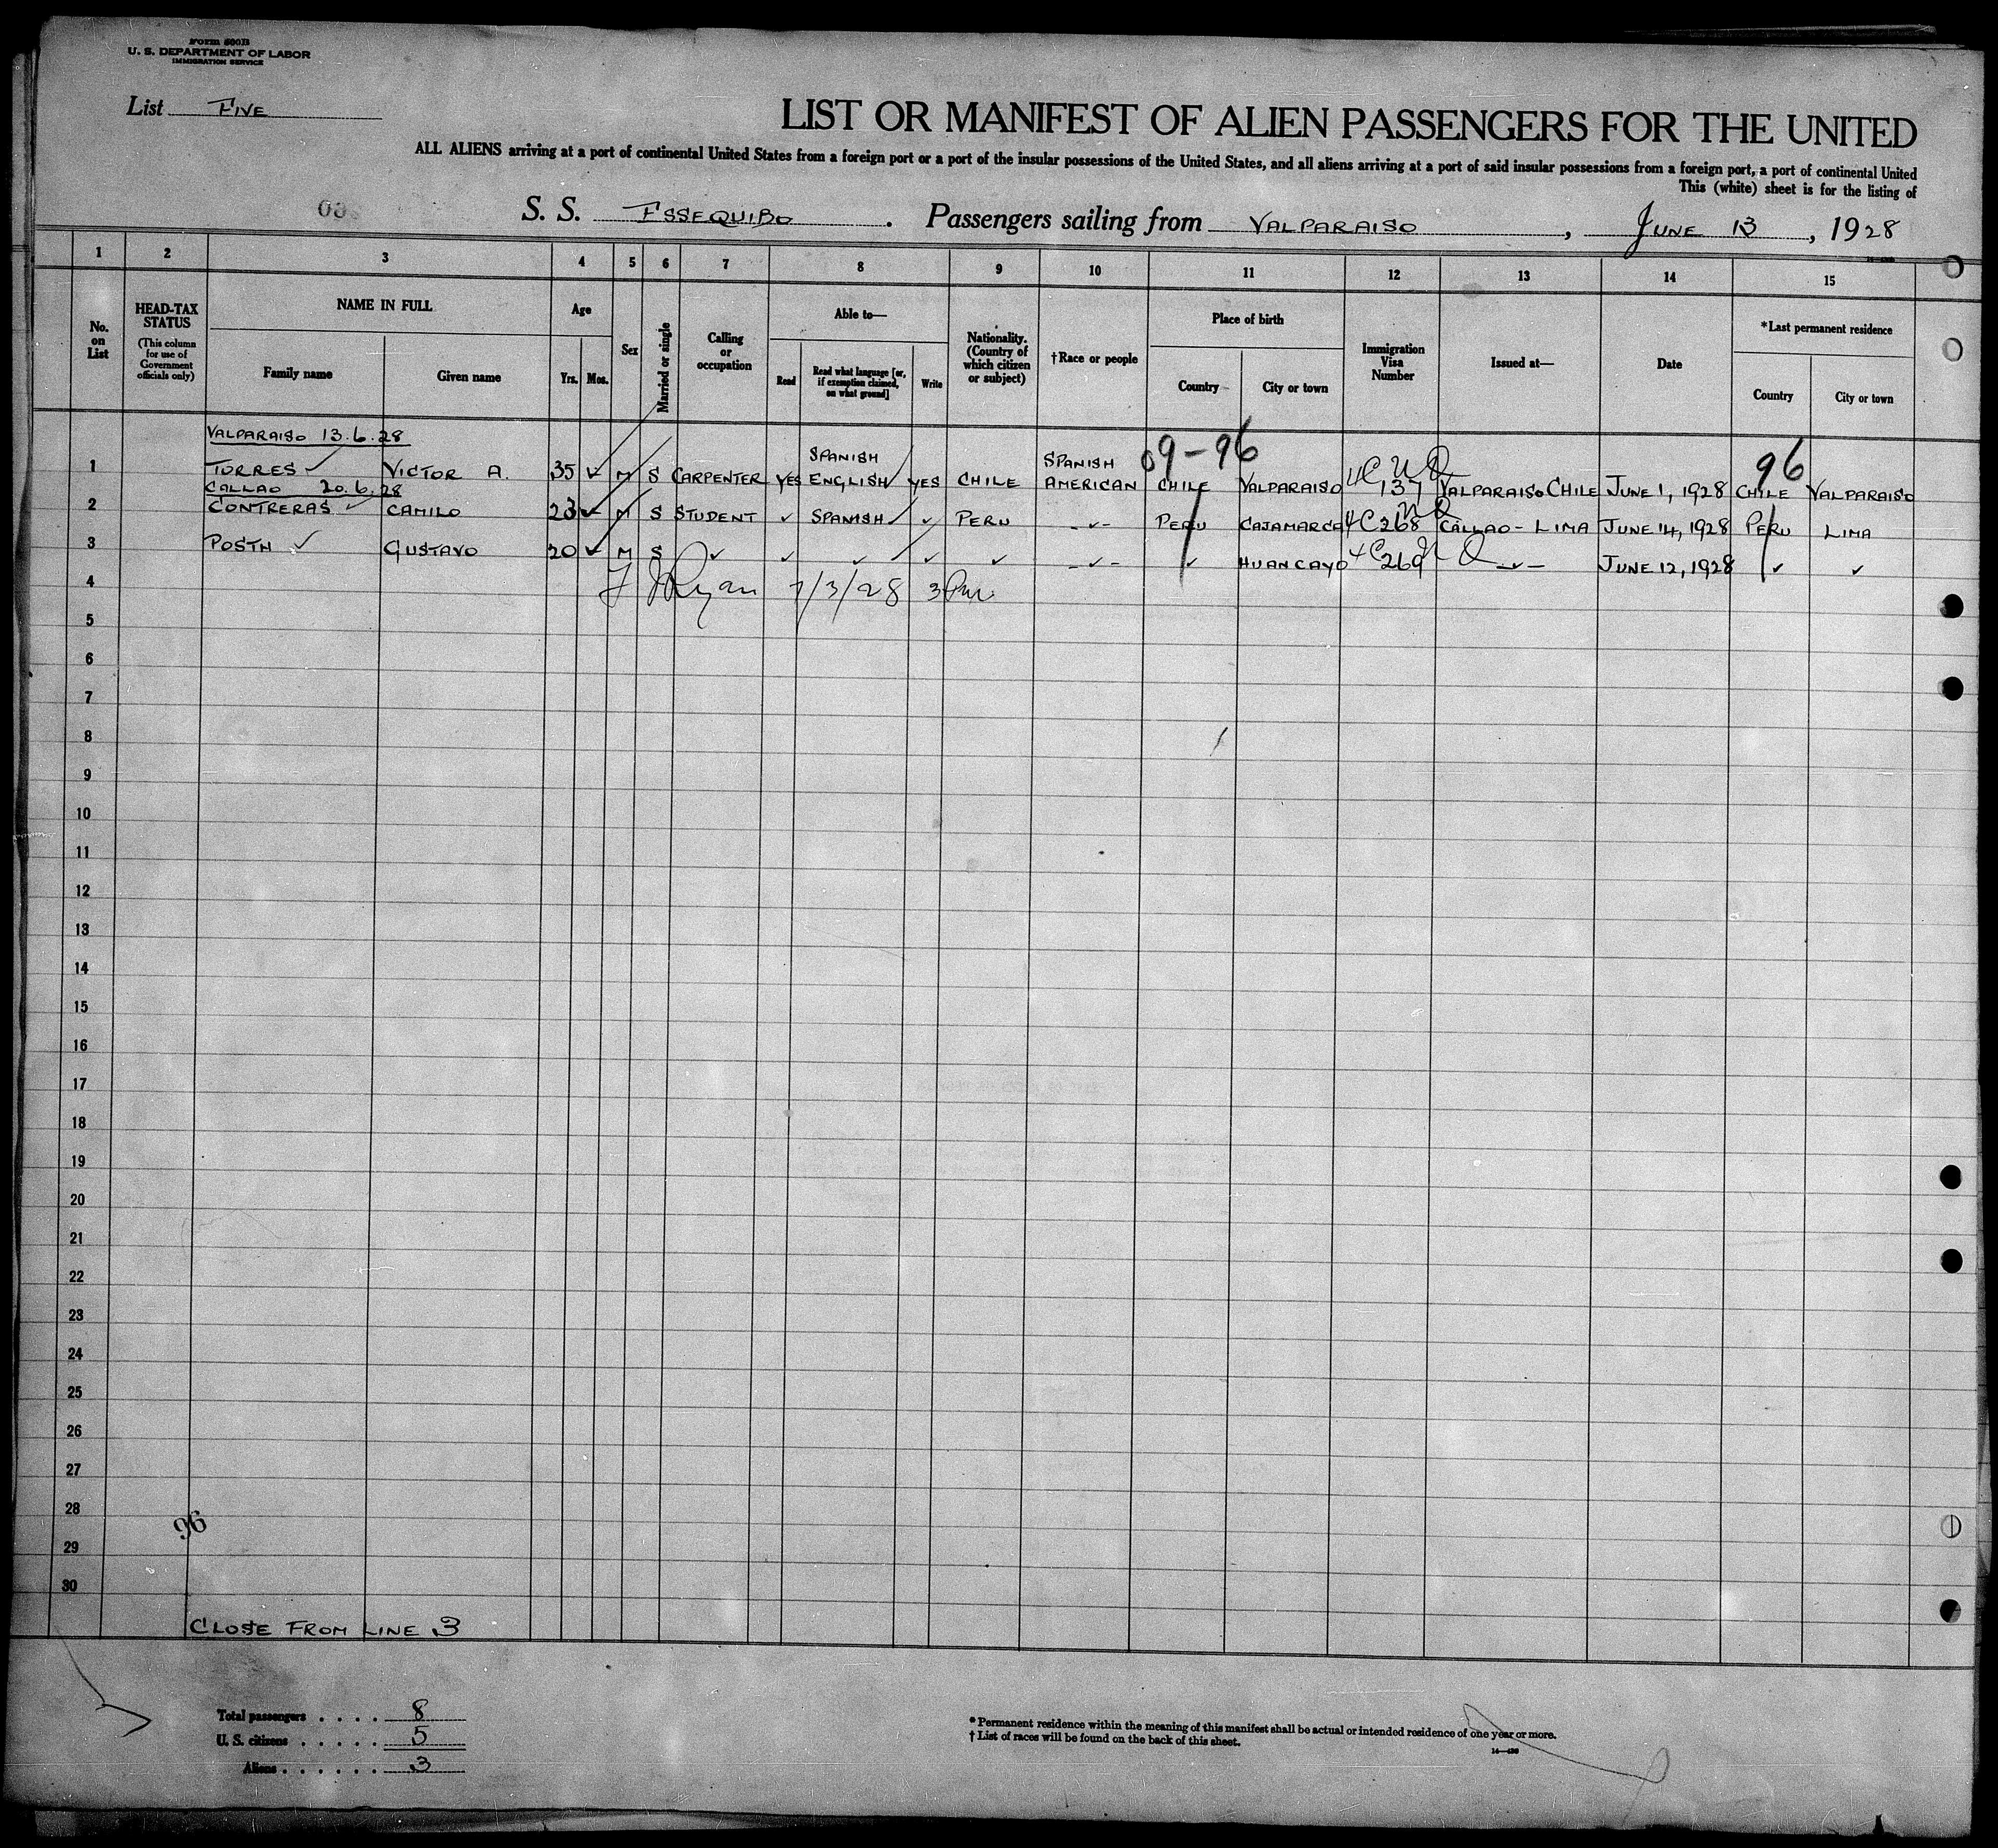 Form 500B
U. S. DEPARTMENT OF LABOR
IMMIGRATION SERVICE
List FIVE
LIST OR MANIFEST OF ALIEN PASSENGERS FOR THE UNITED
ALL ALIENS arriving at a port of continental United States from a foreign port or a port of the insular possessions of the United States, and all aliens arriving at a port of said insular possessions from a foreign port, a port of continental United
This (white) sheet is for the listing of
S. S. ESSEQUIBO. Passengers sailing from VALPARAISO, JUNE 13, 1928
1 2 3 4 5 6 7 8 9 10 11 12 13 14 15
No. on List
HEAD-TAX STATUS (This column for use of Government officials only)
NAME IN FULL
Family name
Given name
Age
Yrs. Mos.
Sex
Married or single
Calling or occupation
Able to—
Read
Read what language [or, if exemption claimed, on what ground]
Write
Nationality. (Country of which citizen or subject)
†Race or people
Place of birth
Country
City or town
Immigration Visa Number
Issued at—
Date
*Last permanent residence
Country
City or town
VALPARAISO 13.6.28
09-96
96
1 TORRES ✓ VICTOR A. 35 ✓ M S CARPENTER YES SPANISH ENGLISH YES CHILE SPANISH AMERICAN CHILE VALPARAISO 137 VALPARAISO CHILE JUNE 1, 1928 CHILE VALPARAISO
CALLAO 20.6.28
2 CONTRERAS ✓ CAMILO 23 ✓ M S STUDENT ✓ SPANISH ✓ PERU -✓- PERU CAJAMARCA 268 CALLAO - LIMA JUNE 14, 1928 PERU LIMA
3 ✓ GUSTAVO 20 ✓ M S ✓ ✓ ✓ ✓ ✓ -✓- ✓ HUANCAYO 269 -✓- JUNE 12, 1928 ✓ ✓
4 Ryan 7/3/28 3 Pm
5
6
7
8
9
10
11
12
13
14
15
16
17
18
19
20
21
22
23
24
25
26
27
28
96
29
30
CLOSE FROM LINE 3
Total passengers . . . . 8
U. S. citizens . . . . . 5
Aliens . . . . . . 3
* Permanent residence within the meaning of this manifest shall be actual or intended residence of one year or more.
† List of races will be found on the back of this sheet.